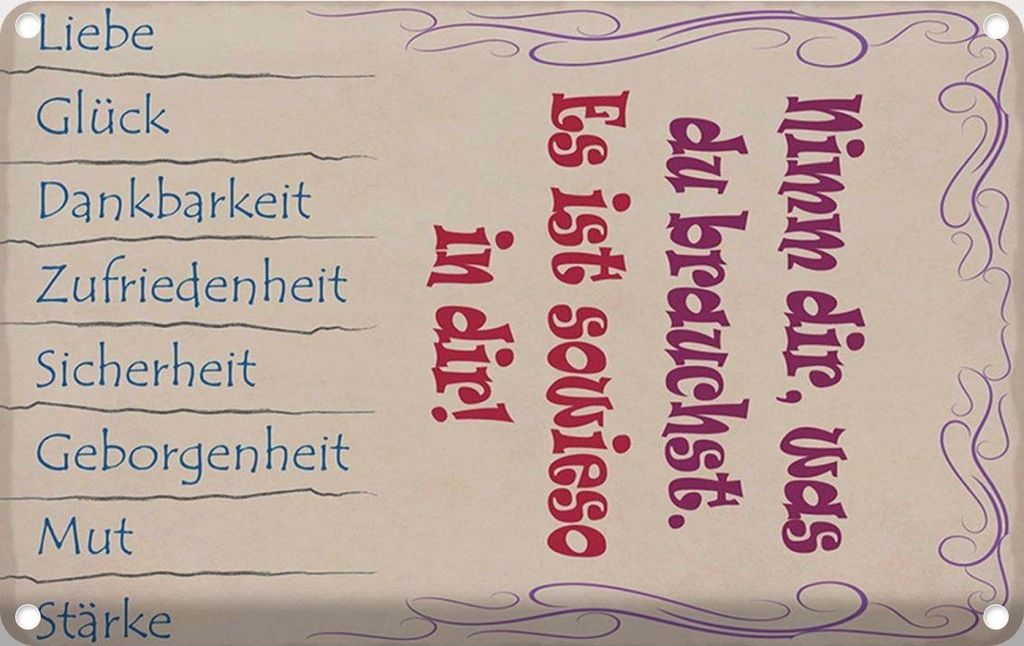 Nimm dir, was
du brauchst.
Es ist sowieso
in dir!
Liebe
Glück
Dankbarkeit
Zufriedenheit
Sicherheit
Geborgenheit
Mut
Stärke